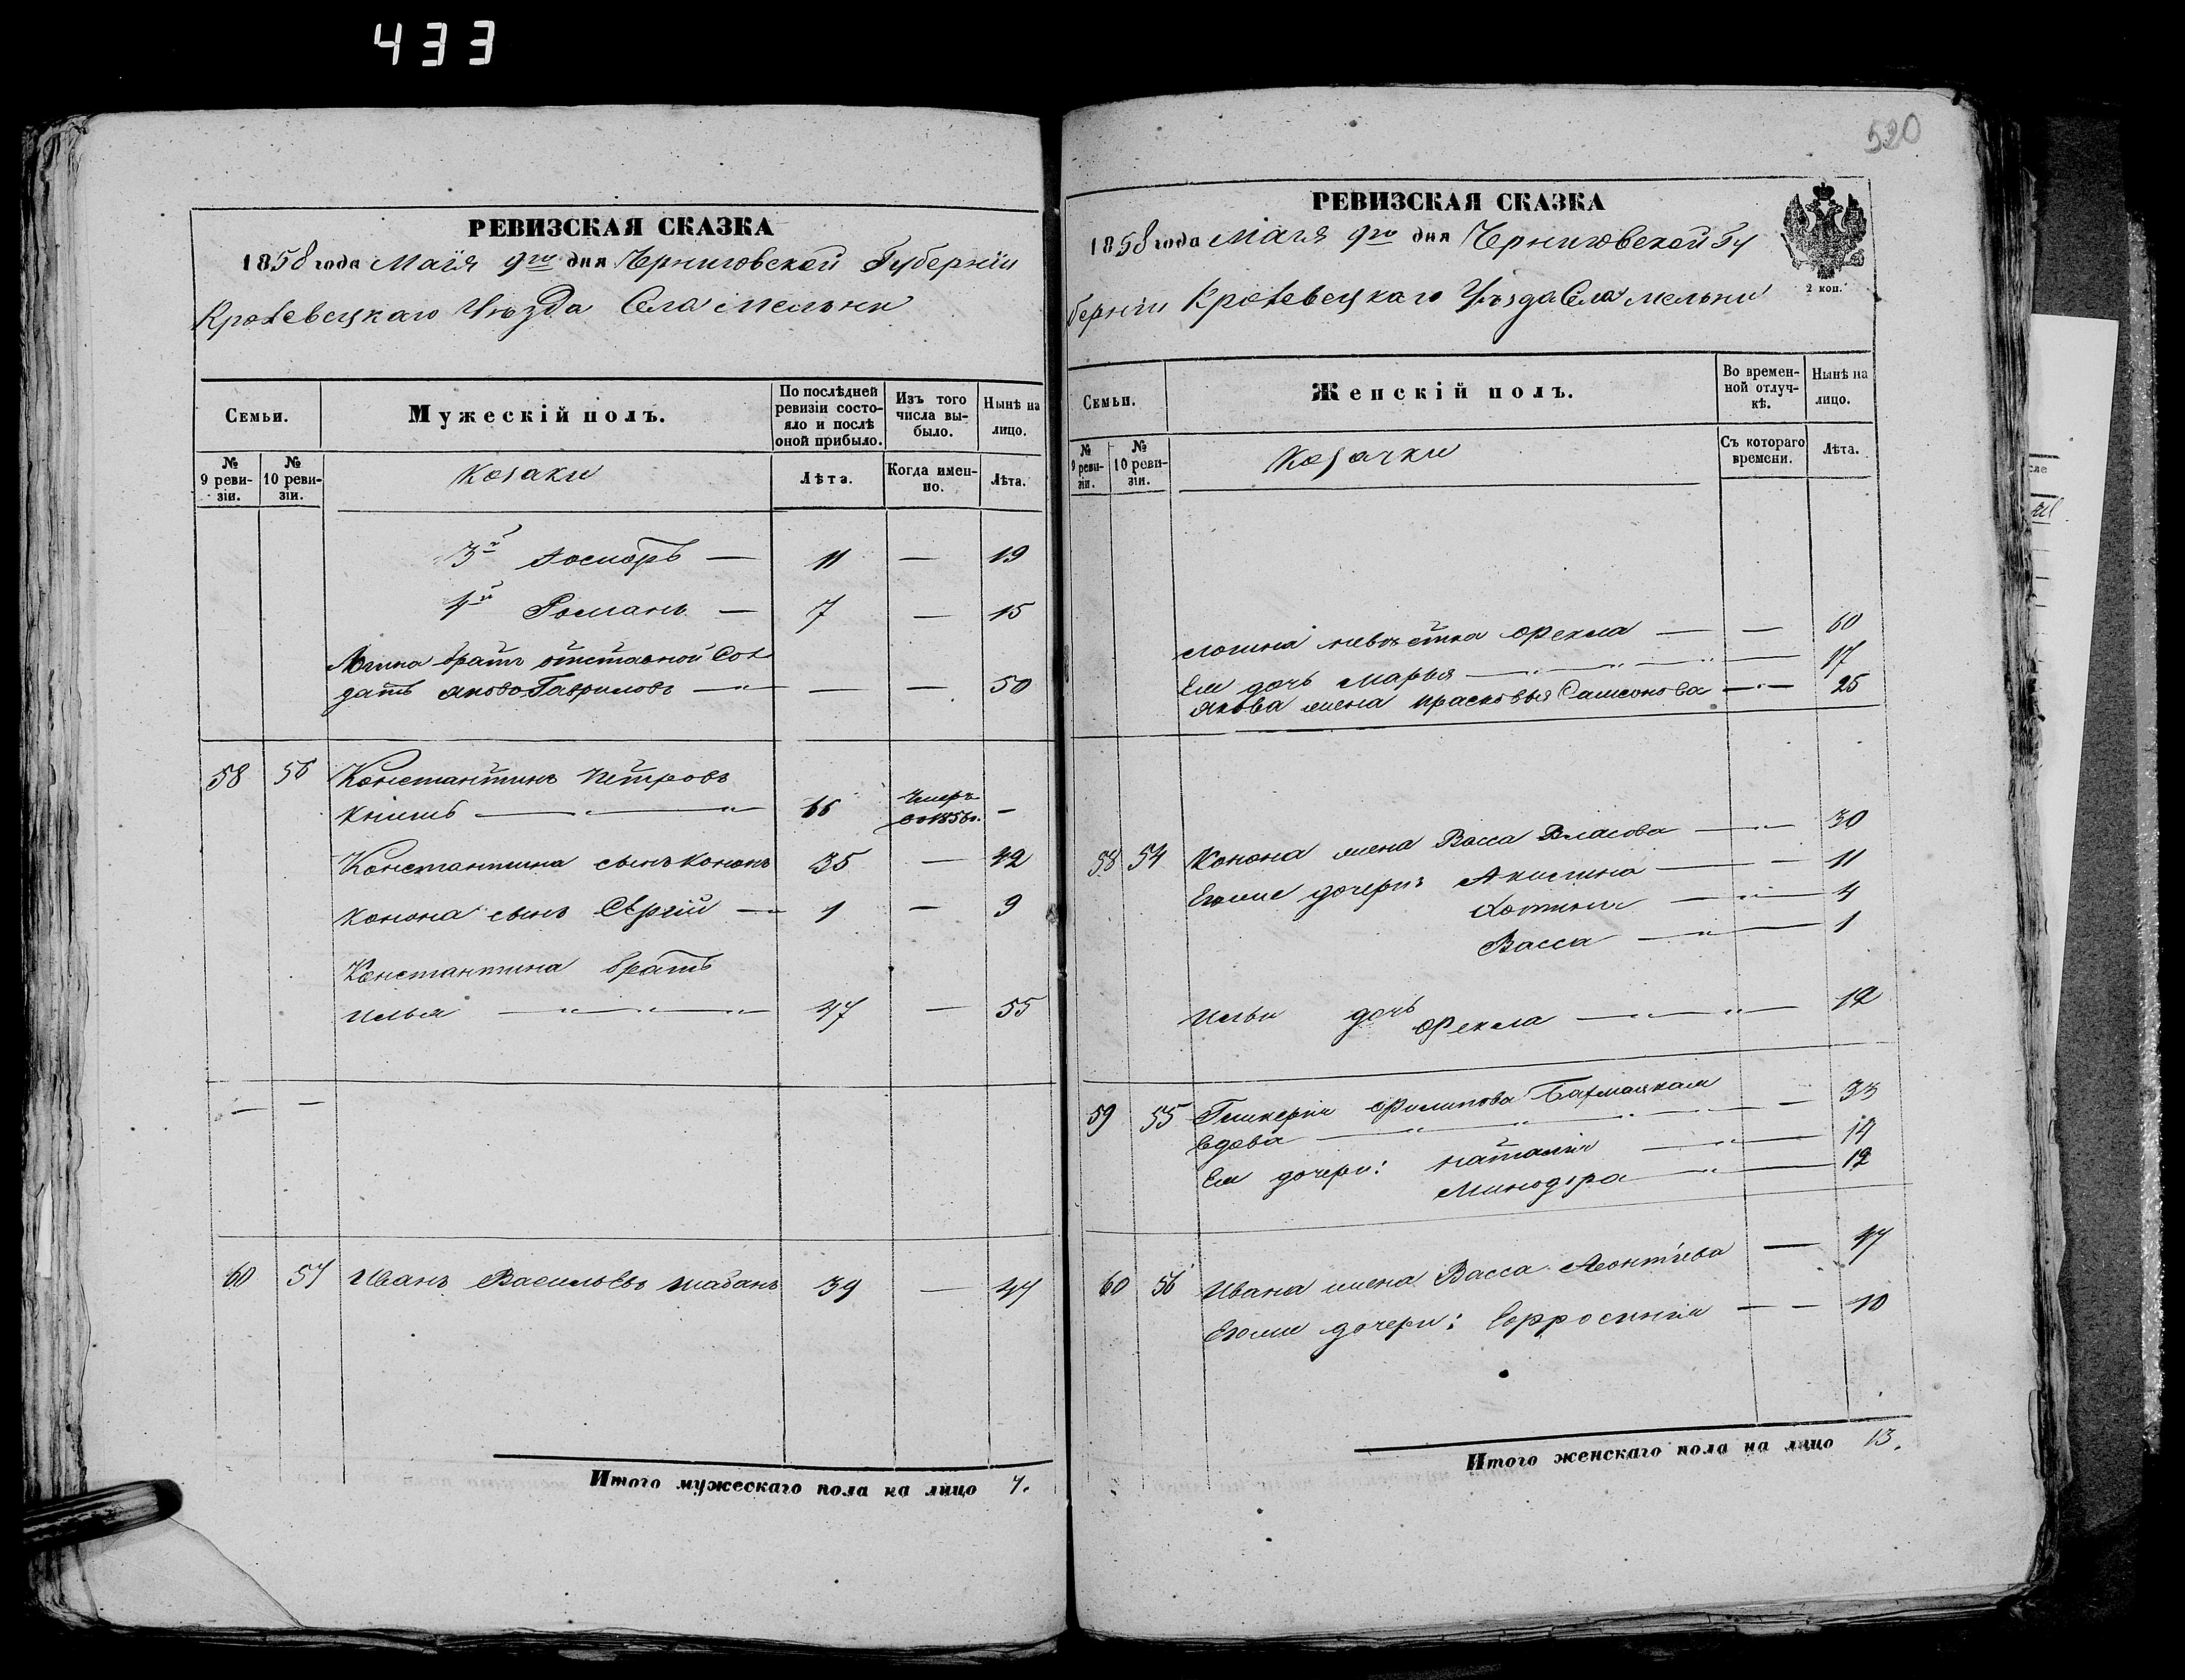 433
РЕВИЗСКАЯ СКАЗКА
1858 года Маія 9го дня Черниговской Губерніи
Кролевецкаго Уѣзда Села Мельни
Семьи.
Мужескій полъ.
По послѣдней ревизіи состояло и послѣ оной прибыло.
Изъ того числа выбыло.
Нынѣ на лицо.
№ 9 ревизіи.
№ 10 ревизіи.
Козаки
Лѣта.
Когда именно.
Лѣта.
3й — 11 — 19
4й Романъ — 7 — 15
братъ отставной Сол
датъ Яковъ Гавриловъ — — — 50
58 56 Константинъ Петровъ
66 Умеръ —
Константина сынъ Кононъ 35 — 42
Конона сынъ Сергій — 1 — 9
Константина братъ
Илья — 47 — 55
— —
60 57 Иванъ Васильевъ Шабанъ 39 — 47
Итого мужескаго пола на лицо 7.
520
РЕВИЗСКАЯ СКАЗКА
1858 года Маія 9го дня Черниговской Гу
берніи Кролевецкаго Уѣзда Села Мельни
2 коп.
Семьи.
Женскій полъ.
Во временной отлучкѣ.
Нынѣ на лицо.
№ 9 ревизіи.
№ 10 ревизіи.
Козачки
Съ котораго времени.
Лѣта.
невѣстка Фекла — — 60
Ея дочь Марья — 17
Якова жена Прасковья Самсонова — 25
58 54 Конона жена Васса Власова — 30
Егоже дочери: Акилина — 11
— 4
Васса — 1
Ильи дочь
Фекла — 12
59 55 Гликерія Филипова Бахмацкая
вдова — 33
Ея дочери: Наталія — 14
Минодора — 12
60 56 Ивана жена Васса Леонтіева — 47
Егоже дочери: Ефросинія — — 10
Итого женскаго пола на лицо 13.